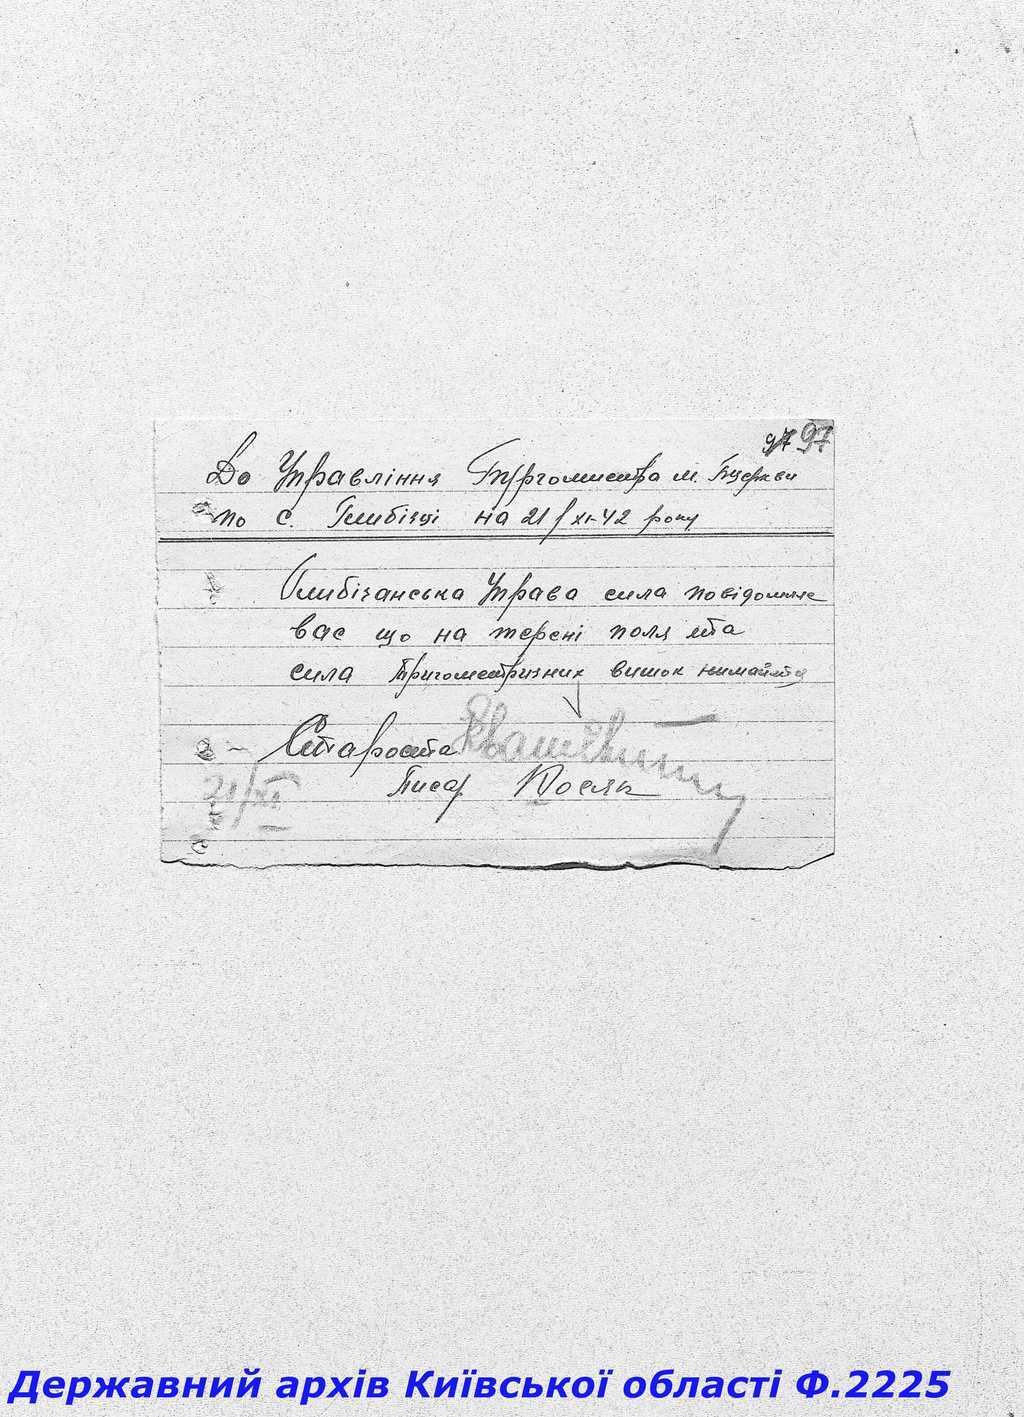 97 97
До Управління Бургомистра м. Бцеркви
по с. Глибічці на 21/XI-42 року
Глибічанська Управа сила повідомляе
вас що на терені поля та
сила тригометричних вишок нимаїтця
Староста
Писар Косяк
21/XI
Державний архів Київської області Ф.2225